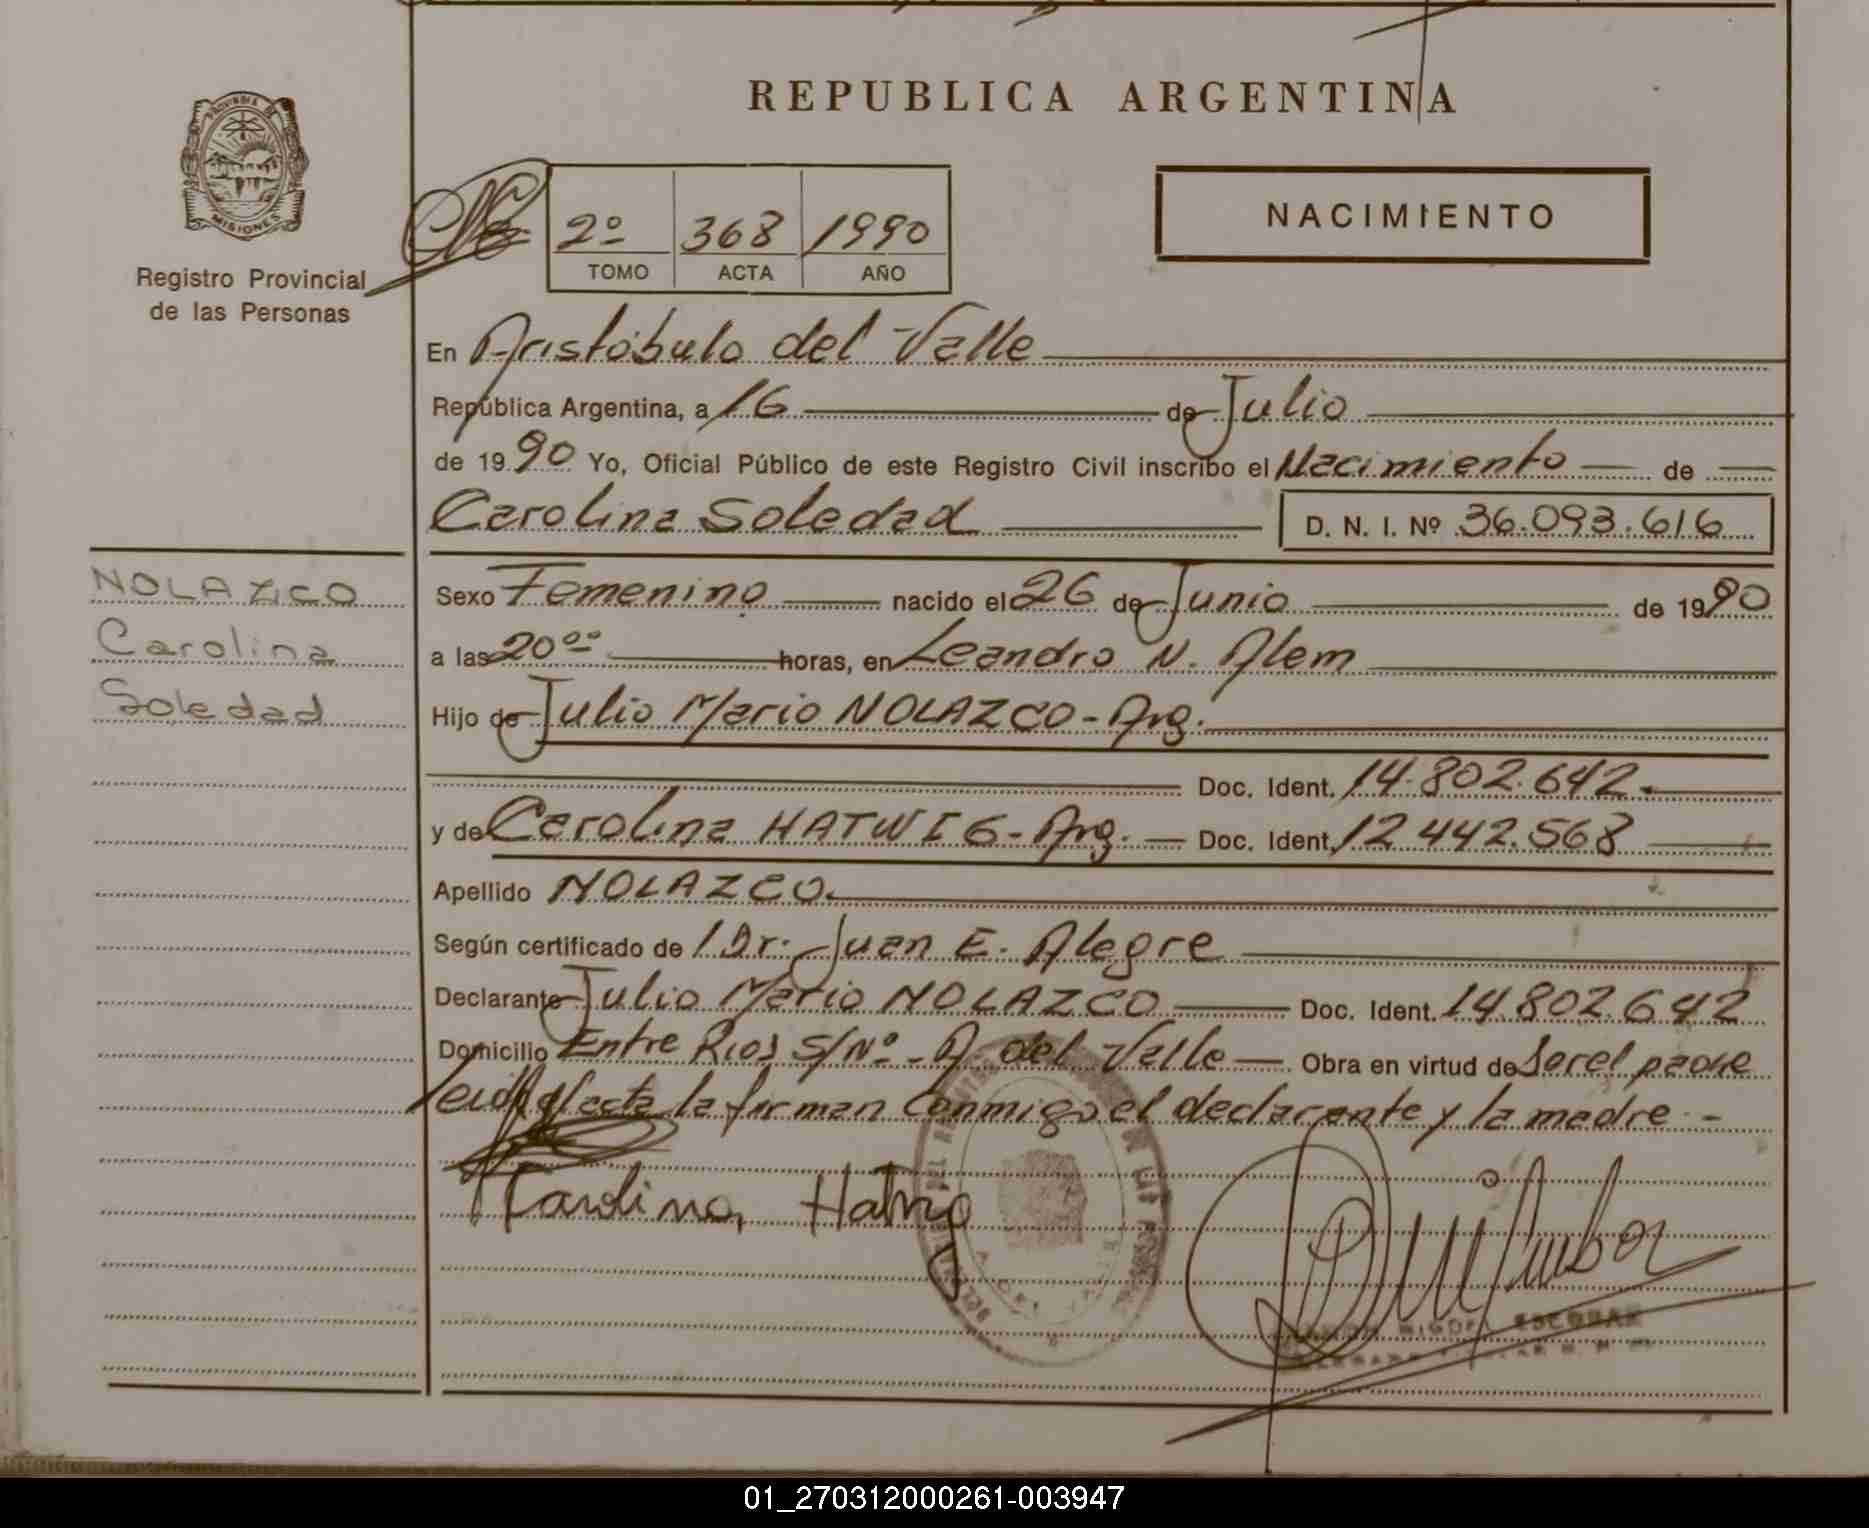 REPUBLICA ARGENTINA
PROVINCIA DE
MISIONES
Registro Provincial
de las Personas
2º 368 1990
TOMO ACTA AÑO
NACIMIENTO
En Aristóbulo del Valle
República Argentina, a 16 de Julio
de 1990 Yo, Oficial Público de este Registro Civil inscribo el Nacimiento de
Carolina Soledad D. N. I. Nº 36.093.616
NOLAZCO
Carolina
Soledad
Sexo Femenino nacido el 26 de Junio de 1990
a las 20⁰⁰ horas, en Leandro N. Alem
Hijo de Julio Mario NOLAZCO - Arg.
Doc. Ident. 14.802.642.
y de Carolina HATWIG - Arg. Doc. Ident. 12.442.568
Apellido NOLAZCO.
Según certificado de l Dr. Juan E. Alegre
Declarante Julio Mario NOLAZCO Doc. Ident. 14.802.642
Domicilio Entre Rios S/Nº - A. del Valle Obra en virtud de Ser el padre
leida el acta la firman conmigo el declarante y la madre. -
Carolina Hatwig
MIGUEL ESCOBAR
01_270312000261-003947